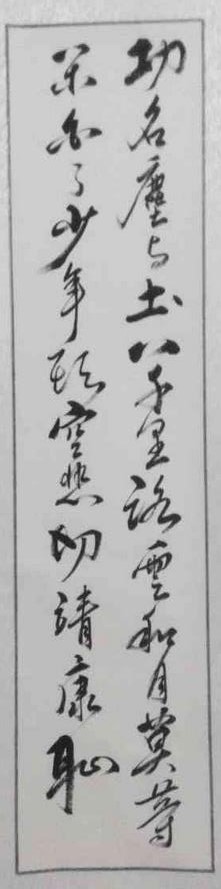 功名塵与土八千里路雲和月莫等
閑白了少年頭空悲切靖康耻